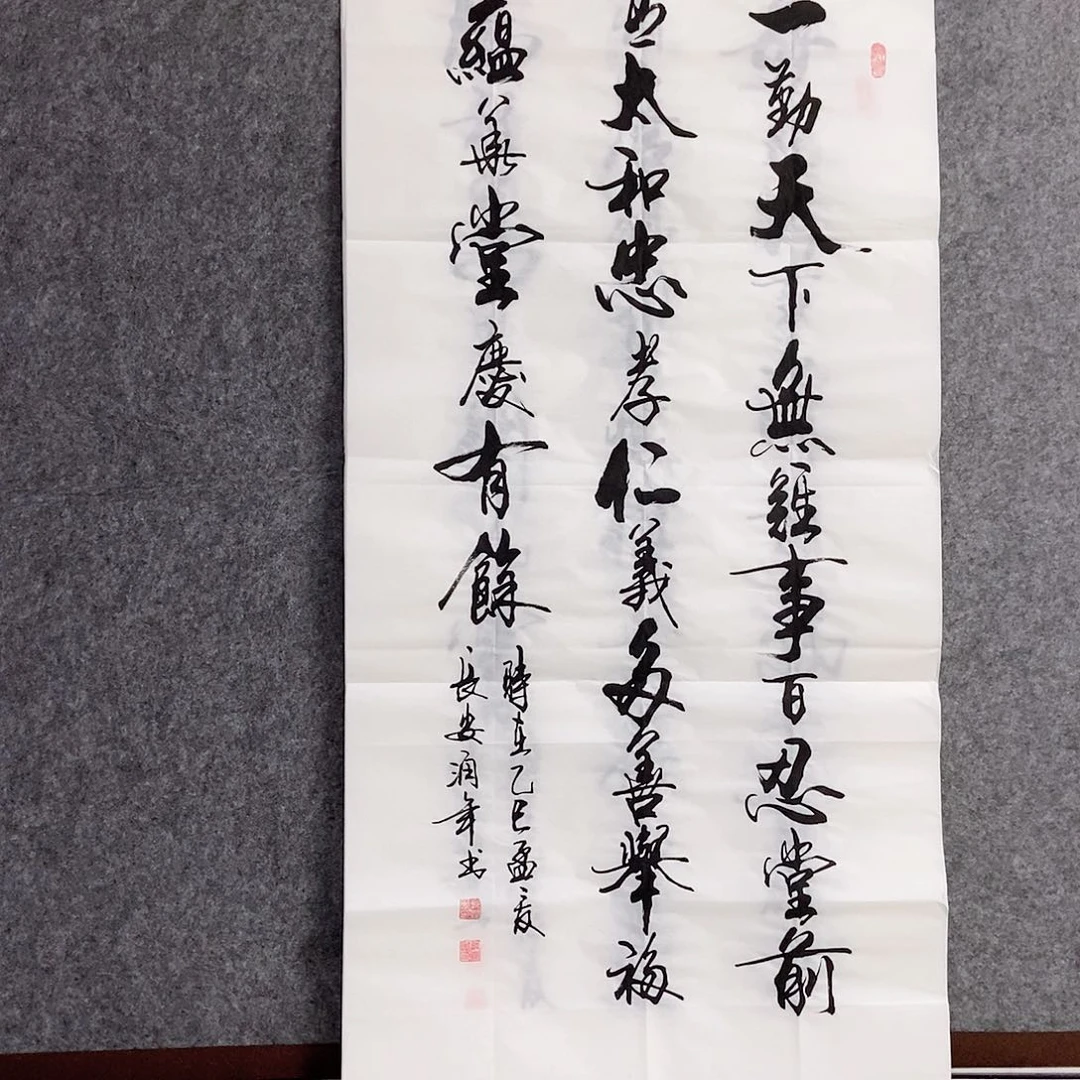 一勤天下無難事百忍堂前
太和忠孝仁義多善舉福
蘊華堂慶有餘
時在乙巳孟夏
長安潤年书